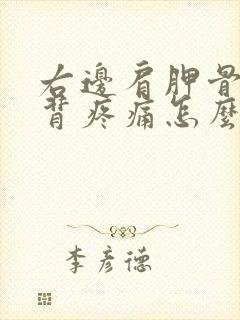 右邊肩胛骨
背疼痛怎麼
李彥德